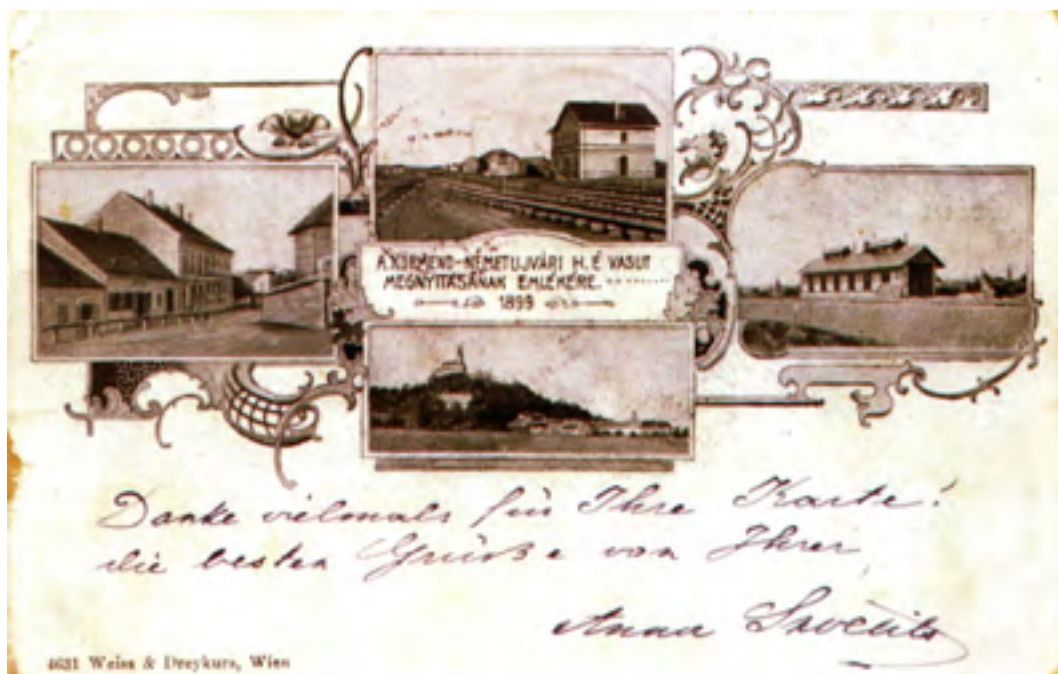 A KÖRMEND-NÉMETUJVÁRI H. É. VASUT
MEGNYITÁSÁNAK EMLÉKÉRE.
1899
Danke vielmals für Ihre Karte!
die besten Grüße von Ihrer
Anna
4631 Weiss & Dreykurs, Wien